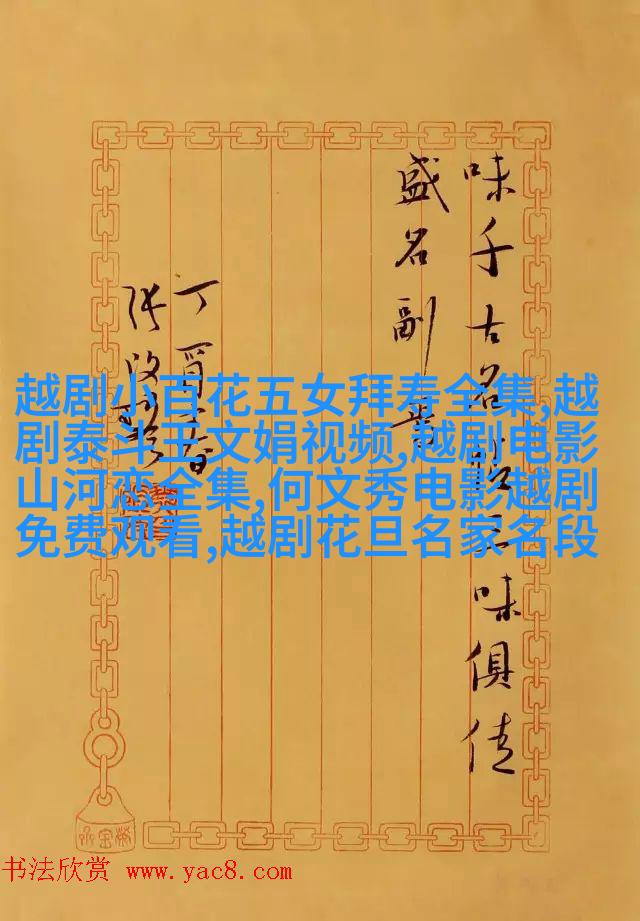 味千古名味俱佳
盛名副
丁酉春
越剧小百花五女拜寿全集,越
剧泰斗王文娟视频,越剧电影
山河恋全集,何文秀电影越剧
免费观看,越剧花旦名家名段
书法欣赏 www.yac8.com